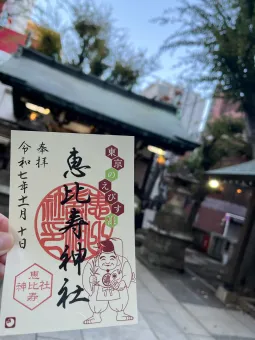 奉拝
東京のえびす様
恵比寿神社
令和七年十一月十日
恵比
神社
寿